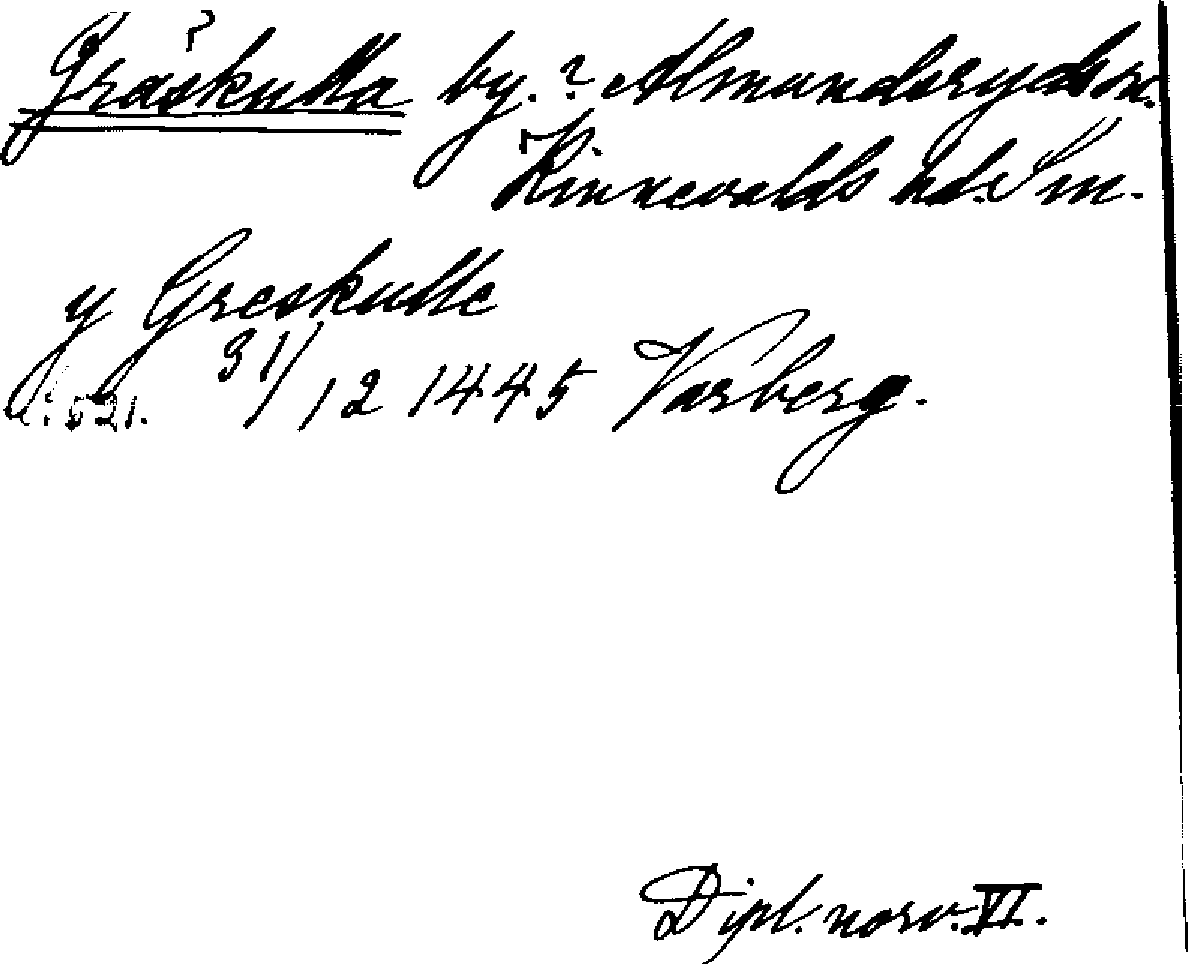 ?
Gräskulla by. ? Almundsryds sn.
Kinnevalds hd. Sm.
y Greskulle
s. 521. 31/12 1445 Varberg.
Dipl. norv. VI.